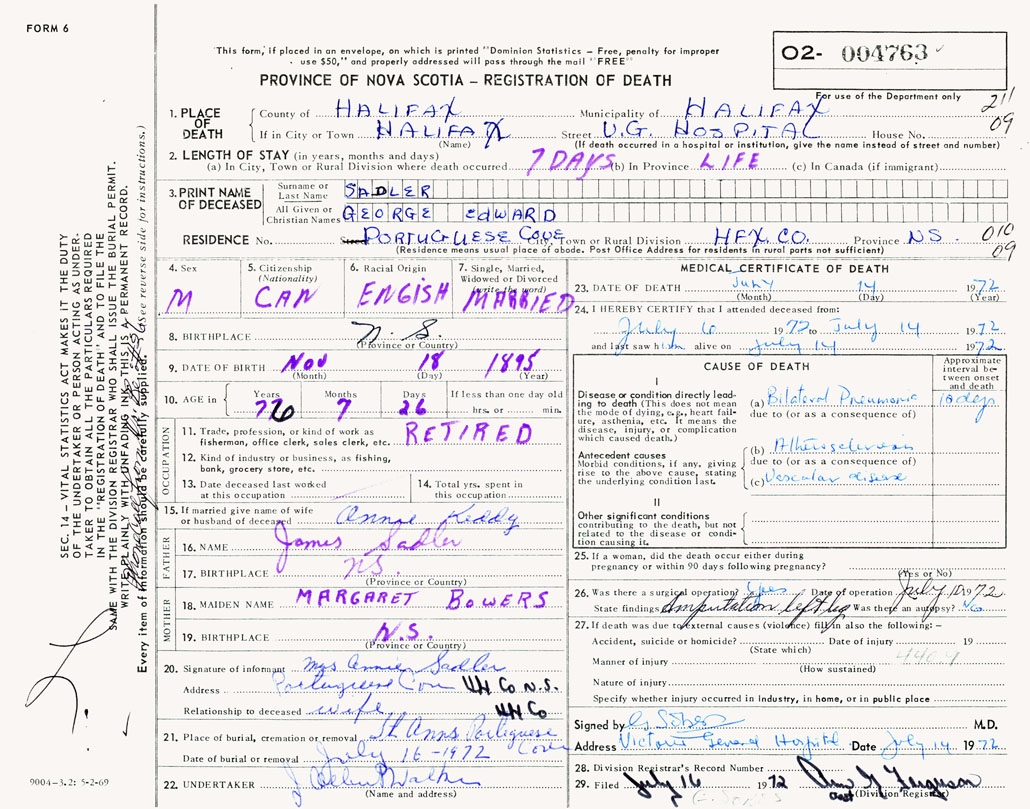 FORM 6
"This form, if placed in an envelope, on which is printed "Dominion Statistics – Free, penalty for improper
use $50," and properly addressed will pass through the mail "FREE"
PROVINCE OF NOVA SCOTIA – REGISTRATION OF DEATH
O2- 004763
For use of the Department only
211
09
1. PLACE OF DEATH
County of HALIFAX Municipality of HALIFAX
If in City or Town HALIFAX Street V.G. HOSPITAL House No.
(Name) (If death occurred in a hospital or institution, give the name instead of street and number)
2. LENGTH OF STAY (in years, months and days)
(a) In City, Town or Rural Division where death occurred 7 DAYS (b) In Province LIFE (c) In Canada (if immigrant)
3. PRINT NAME OF DECEASED
Surname or Last Name SADLER
All Given or Christian Names GEORGE EDWARD
RESIDENCE No. Street PORTUGUESE COVE City, Town or Rural Division HFX. CO. Province NS
010
09
(Residence means usual place of abode. Post Office Address for residents in rural parts not sufficient)
4. Sex
M
5. Citizenship
(Nationality)
CAN
6. Racial Origin
ENGISH
7. Single, Married,
Widowed or Divorced
(write the word)
MARRIED
8. BIRTHPLACE N. S.
(Province or Country)
9. DATE OF BIRTH Nov 18 1895
(Month) (Day) (Year)
10. AGE in
Years Months Days If less than one day old
76 7 26 hrs. or min.
OCCUPATION
11. Trade, profession, or kind of work as
fisherman, office clerk, sales clerk, etc. RETIRED
12. Kind of industry or business, as fishing,
bank, grocery store, etc.
13. Date deceased last worked
at this occupation
14. Total yrs. spent in
this occupation
15. If married give name of wife
or husband of deceased Annie Keddy
FATHER
16. NAME James Sadler
17. BIRTHPLACE NS.
(Province or Country)
MOTHER
18. MAIDEN NAME MARGARET BOWERS
19. BIRTHPLACE N.S.
(Province or Country)
20. Signature of informant Mrs Annie Sadler
Address Portuguese Cove Hfx Co N.S.
Relationship to deceased wife Hfx Co
21. Place of burial, cremation or removal St Anns Portuguese Cove
Date of burial or removal July 16-1972
22. UNDERTAKER
(Name and address)
MEDICAL CERTIFICATE OF DEATH
23. DATE OF DEATH July 14 1972
(Month) (Day) (Year)
24. I HEREBY CERTIFY that I attended deceased from:
July 6 1972 to July 14 1972
and last saw him alive on July 14 1972
CAUSE OF DEATH
Approximate
interval be-
tween onset
and death
I
Disease or condition directly lead-
ing to death (This does not mean
the mode of dying, e.g., heart fail-
ure, asthenia, etc. It means the
disease, injury, or complication
which caused death.)
(a) Bilateral Pneumonia 10 days
due to (or as a consequence of)
Antecedent causes
Morbid conditions, if any, giving
rise to the above cause, stating
the underlying condition last.
(b) Atherosclerosis
due to (or as a consequence of)
(c) Vascular disease
II
Other significant conditions
contributing to the death, but not
related to the disease or condi-
tion causing it.
25. If a woman, did the death occur either during
pregnancy or within 90 days following pregnancy?
(Yes or No)
26. Was there a surgical operation? Yes Date of operation July 1972
State findings Amputation left leg Was there an autopsy? No
27. If death was due to external causes (violence) fill in also the following: –
Accident, suicide or homicide? Date of injury 19
(State which)
Manner of injury
(How sustained)
Nature of injury
Specify whether injury occurred in industry, in home, or in public place
Signed by M.D.
Address Victoria General Hospital Date July 14 1972
28. Division Registrar's Record Number
29. Filed July 16 1972 Ferguson
(Division Registrar)
SEC. 14 – VITAL STATISTICS ACT MAKES IT THE DUTY
OF THE UNDERTAKER OR PERSON ACTING AS UNDER-
TAKER TO OBTAIN ALL THE PARTICULARS REQUIRED
IN THE "REGISTRATION OF DEATH" AND TO FILE THE
SAME WITH THE DIVISION REGISTRAR WHO SHALL ISSUE THE BURIAL PERMIT.
WRITE PLAINLY WITH UNFADING INK. THIS IS A PERMANENT RECORD.
Every item of information should be carefully supplied. (See reverse side for instructions.)
9004-3.2: 5-2-69